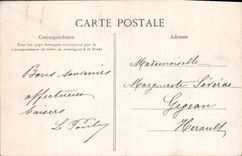 CARTE POSTALE
Correspondance
Tous les pays étrangers n'acceptent pas la
correspondance au recto, se renseigner à la Poste
Adresse
Bons souvenirs
affectueux
baisers
Mademoiselle
Marguerite Séverine
Gigean
Herault